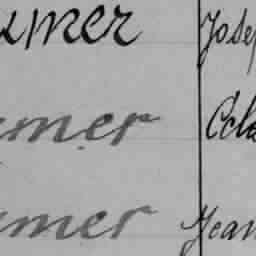 umer Josep
mer Cela
mer Jean